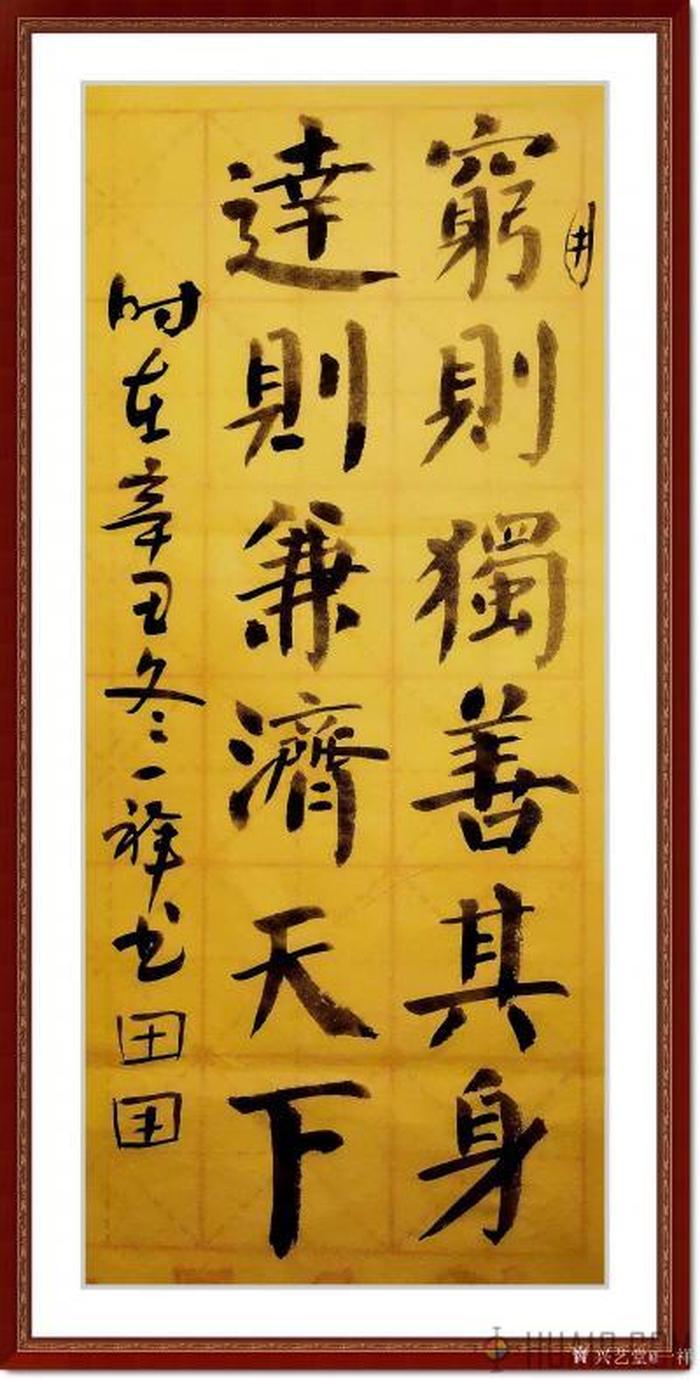 窮則獨善其身
達則兼濟天下
时在辛丑冬一祥书
兴艺堂@一祥